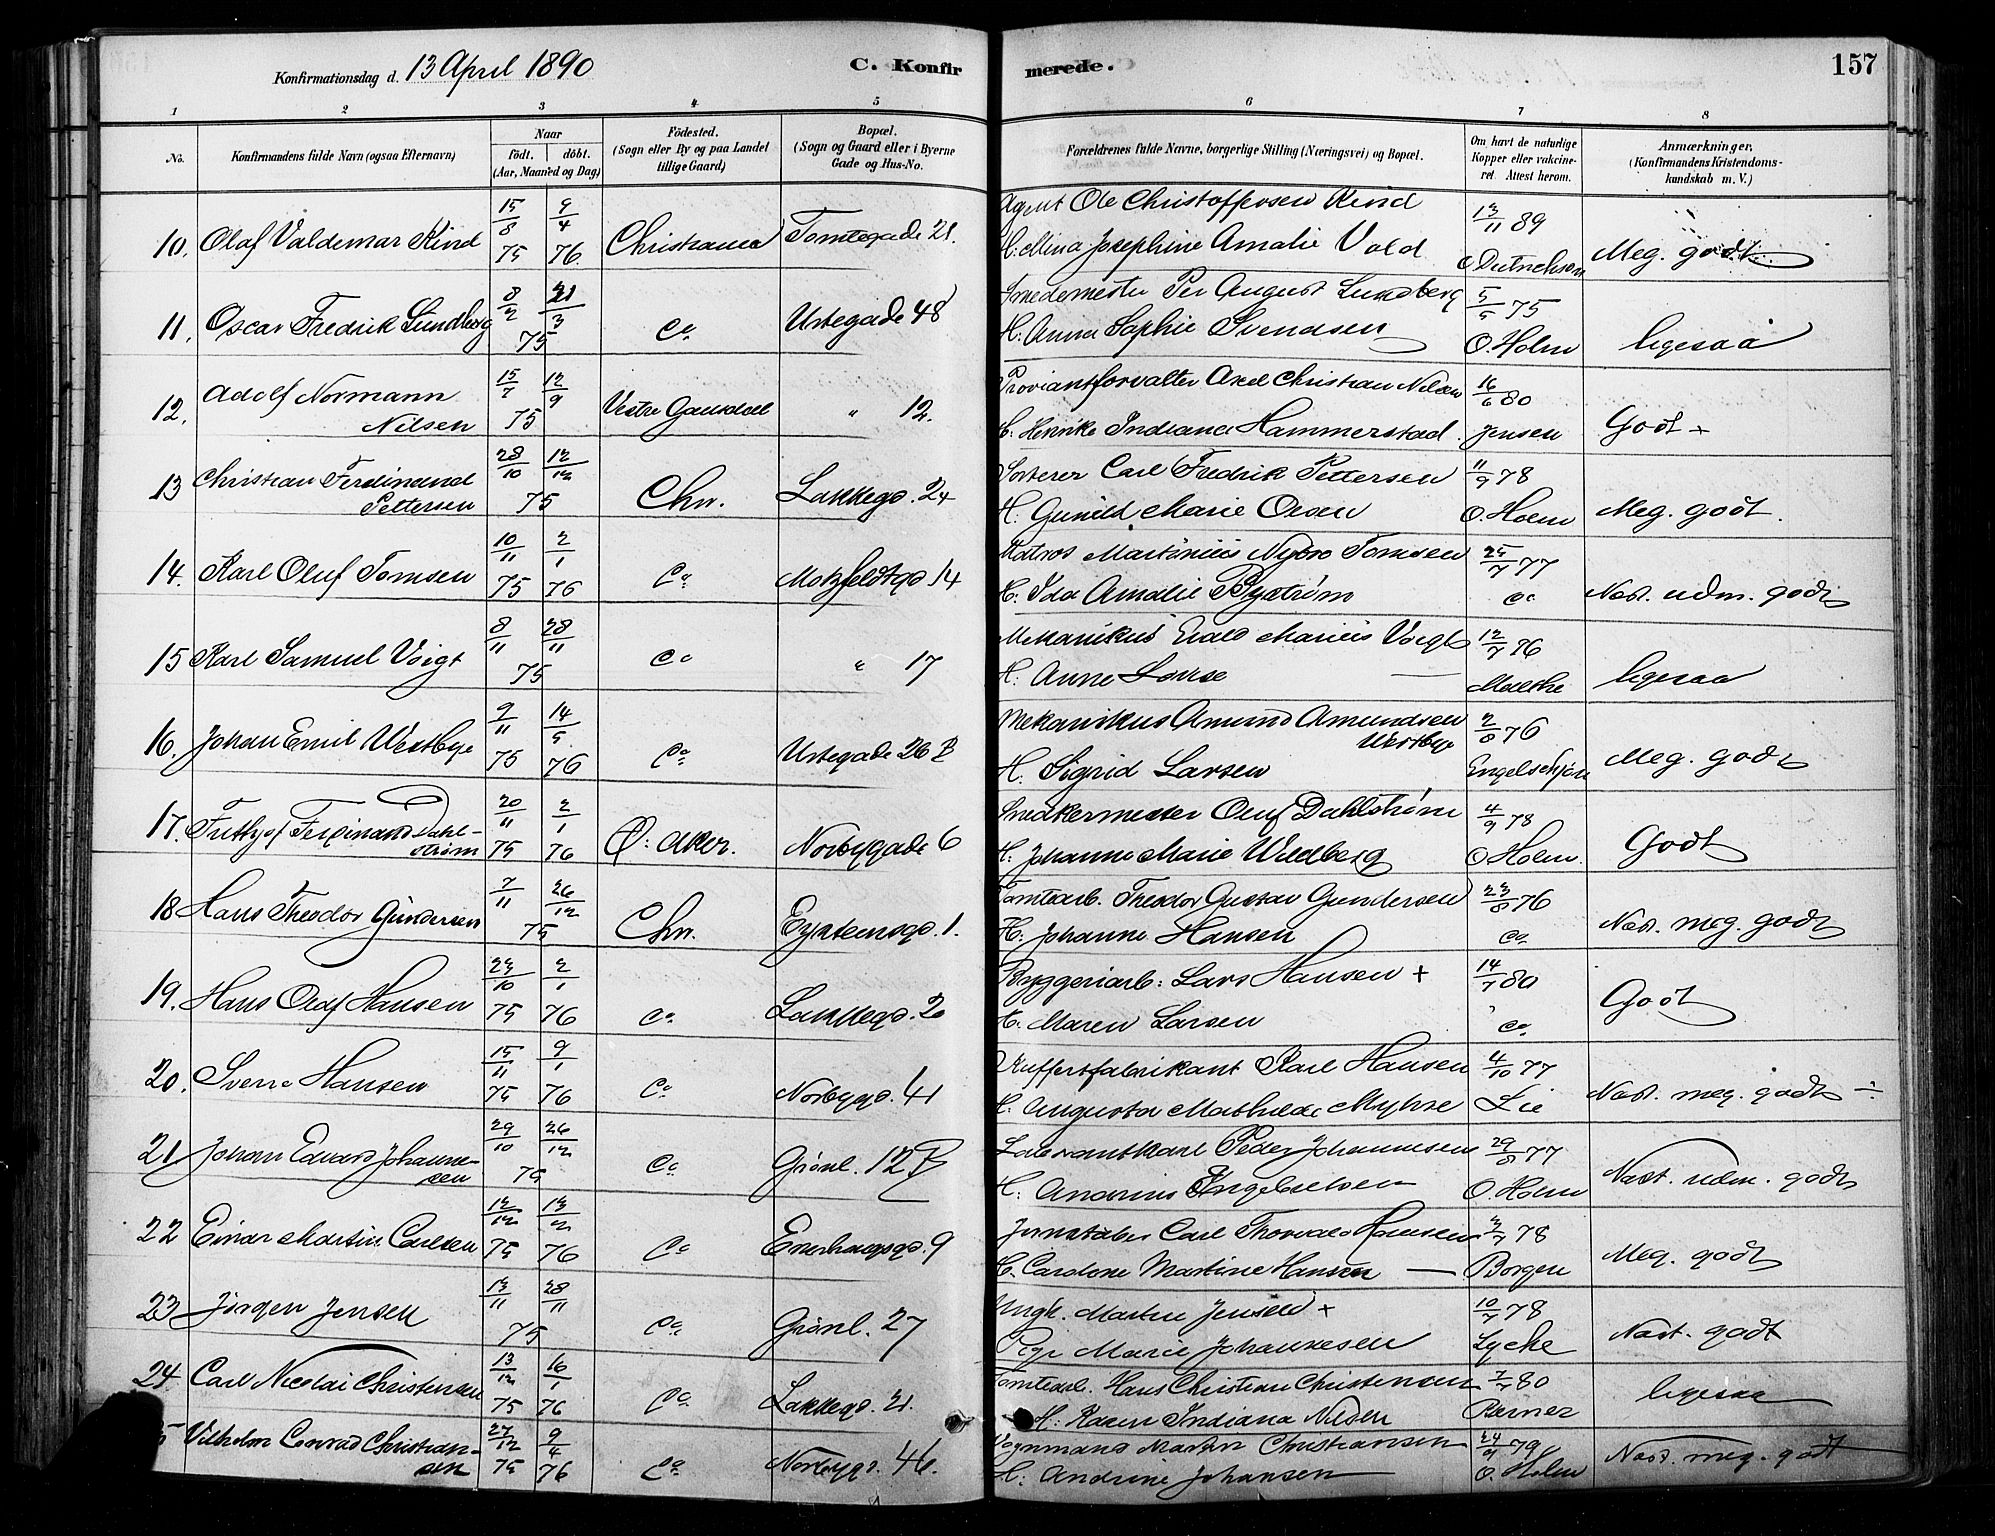 Konfirmationsdag d. 13 April 1890
C. Konfirmerede.
157
1 2 3 4 5 6 7 8
No.
Konfirmandens fulde Navn (ogsaa Efternavn)
Naar
födt. döbt.
(Aar, Maaned og Dag)
Födested.
(Sogn eller By og paa Landet tillige Gaard)
Bopæl.
(Sogn og Gaard eller i Byerne Gade og Hus-No.
Forældrenes fulde Navne, borgerlige Stilling (Næringsvei) og Bopæl.
Om havt de naturlige Kopper eller vakcineret. Attest herom.
Anmærkninger.
(Konfirmandens Kristendomskundskab m. V.)
10. Olaf Valdemar Kind 15/8 75 9/4 76 Christiania Tomtegade 21. Agent Ole Christoffersen Kind 13/11 89 Meg. godt
H: Mina Josephine Amalie Vold
11. Oscar Fredrik Lundberg 8/2 21/3 75 Co Urtegade 48 Smedemester Per August Lundberg 5/5 75 ligesaa
H: Anna Sophie Svendsen O. Holm
12. Adolf Normann Nilsen 15/7 12/9 75 Vestre Gausdal " 12. Proviantforvalter Axel Christian Nilsen 16/6 80 Godt
H: Henrike Indiana Hammerstad. Jensen
13 Christian Ferdinand Pettersen 28/10 12/12 75 Chr. Lakkegd. 24 Sorterer Carl Fredrik Pettersen 11/9 78 Meg. godt.
H. Gunild Marie Olsen O. Holm
14. Karl Oluf Tomsen 10/11 75 2/1 76 Co Motzfeldtgd 14 Matros Martinius Nybro Tomsen 25/7 77 Næst. udm. godt
H: Ida Amalie Byström Co
15 Karl Samuel Voigt 8/11 28/11 75 Co " 17 Mekanikus Evald Marius Voigt 12/7 76 ligesaa
H. Anne Lovise Malthe
16. Johan Emil Westbye 9/11 75 14/5 76 Co Urtegade 26 B Mekanikus Amund Amundsen Westbye 2/8 76 Meg. godt
H. Sigrid Larsen Engelschjøn
17. Frithjof Ferdinand Dahlström 20/11 75 2/1 76 Ö: Aker. Norbygade 6 Snedkermester Oluf Dahlström 4/9 78 Godt
H: Johanne Marie Wedberg O Holm.
18 Hans Theodor Gundersen 7/11 26/12 75 Chr. Eystensgd. 1. Tomtearb. Theodor Gustav Gundersen 23/8 76 Næst. meg. godt
H: Johanne Hansen Co
19. Hans Olaf Hansen 23/10 75 2/1 76 Co Lakkegd. 20 Byggeriarb: Lars Hansen + 14/7 80 Godt
H. Maren Larsen Co
20. Sverre Hansen 15/11 75 9/1 76 Co Norbygd. 41 Kuffertfabrikant Karl Hansen 4/10 77 Næst. meg. godt ÷
H. Augusta Mathilde Myhre Lie
21 Johan Edvard Johannesen 29/10 26/12 75 Co Grønl. 12 B Peder Johannesen 29/8 77 Næst. udm. godt
H: O. Holm
22 Einar Martin Carlsen 12/12 75 13/2 76 Co Enerhaugsgd. 9 Jernstøber Carl Thorvald Hansen 3/7 78 Meg. godt
H. Caroline Martine Hansen Borgen
23 Jørgen Jensen 13/11 28/11 75 Co Grönl. 27 Ungk. Martin Jensen + 10/7 78 Næst. godt
Pige Marie Johannesen Lyche
24 Carl Nicolai Christensen 13/12 75 16/1 76 Co Lakkegd. 21. Tomtearb. Hans Christian Christensen 7/7 80 ligesaa
H: Karen Indiana Nilsen Berner
5 Vilhelm Conrad Christiansen 27/12 75 9/4 76 Co Norbygd. 46. Vognmand Martin Christiansen 24/9 79 Næst. meg. godt
H: Andrine Johansen O. Holm